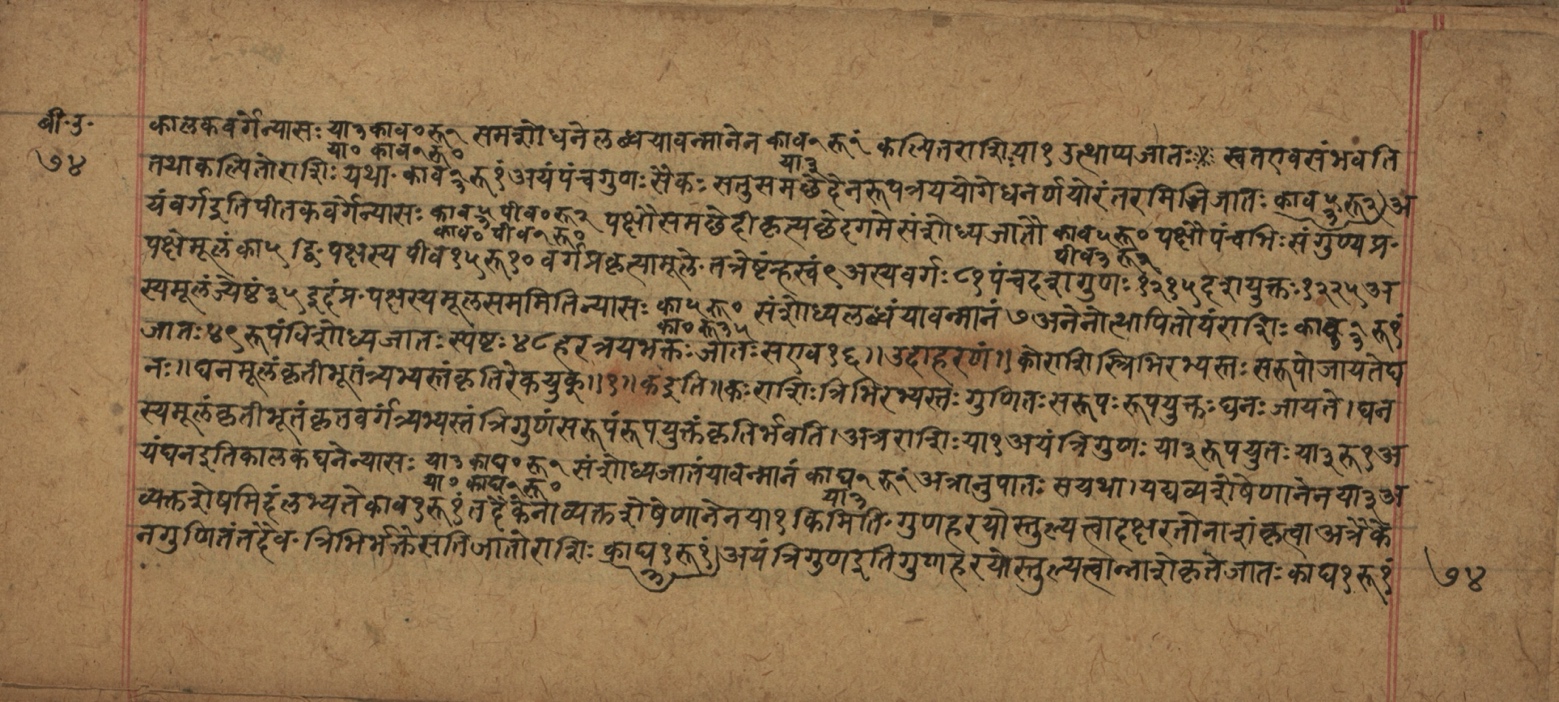 बी॰उ॰
७४
कालकवर्गेन्यासः या३काव॰रू१ समशोधनेलब्धयावन्मानेन काव१रू१ं कल्पितराशिःया१उत्थाप्यजातः स्वतएवसंभवति
या॰ काव१रू॰ या३
तथाकल्पितोराशिः यथा काव१रू१ं३ अयंपंचगुणः सैकः सतुसमछेदेनरूपत्रययोगेधनर्णयोरंतरामितिजातः काव५रू२ं३ अ
यंवर्गइतिपीतकवर्गेन्यासः काव५पीव॰रू२ं पक्षौसमछेदीकृत्यछेदगमेसंशोध्यजातौ काव५रू॰ पक्षौपंचभिःसंगुण्यप्र॰
काव॰पीव१रू॰ पीव३रू२
पक्षेमूलंका५द्वि॰पक्षस्य पीव१५रू१॰ वर्गप्रकृत्यामूले॰तत्रेष्टंह्रस्वं९अस्यवर्गः८१पंचदशगुणः१२१५दशयुक्तः१२२५अ
स्यमूलंज्यैष्ठं३५इदंप्र॰पक्षस्यमूलसममितिन्यासः का५रू॰ संशोध्यलब्धंयावन्मानं७अनेनोत्थापितोयंराशिः काव१३रू१ं
का॰रू३५
जातः४९रूपंविशोध्यजातःस्पष्टः४८हरत्रयभक्तःजातःसएव१६॥उदाहरणं॥कोराशिस्त्रिभिरभ्यस्तः सरूपोजायतेघ
नः॥घनमूलंकृतीभूतंत्र्यभ्यस्तंकृतिरेकयुक्॥१॥कइति॥कःराशिःत्रिभिरभ्यस्तः गुणितःसरूपःरूपयुक्तःघनःजायते।घन
स्यमूलंकृतीभूतंकृतवर्गंत्र्यभ्यस्तंत्रिगुणंसरूपंरूपयुक्तंकृतिर्भवति।अत्रराशिःया१अयंत्रिगुणः या३रूपयुतः या३रू१अ
यंघनइतिकालकघनेन्यासः या३काघ॰रू१ संशोध्यजातंयावन्मानं काघ१रू१ं अत्रानुपातः सयथा।यद्यव्यशेषेणानेनया३अ
या॰काघ१रू॰ या३
व्यक्तशेषमिदंलभ्यतेकाव१रू१ंतदैकेनाव्यक्तशेषेणानेनया१किमिति॰गुणहरयोस्तुल्यत्वादक्षरतोनाशंकृत्वाअत्रैके
नगुणितंतदेव॰त्रिभिर्भक्तेसतिजातोराशिः काघ१रू१ं३ अयंत्रिगुणइतिगुणहरयोस्तुल्यत्वान्नाशेकृतेजातः काघ१रू१ं
७४